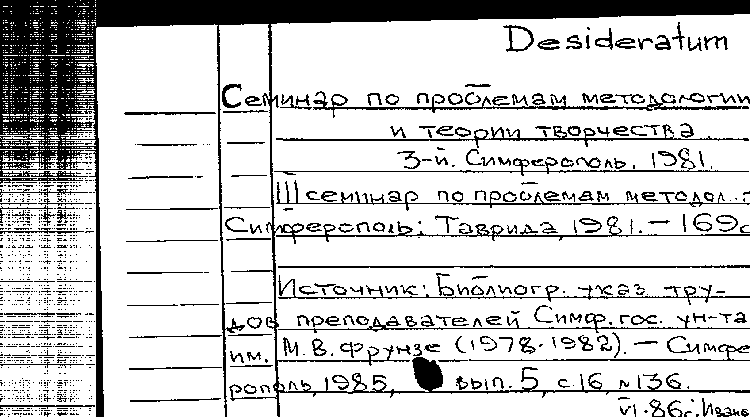 Desideratum
Семинар по проблемам методологии
и теории творчества
3-й. Симферополь, 1981.
III семинар по проблемам методол.
Симферополь: Таврида, 1981. – 169с
Источник: Библиогр. указ. тру-
дов преподавателей Симф. гос. ун-та
им. М.В. Фрунзе (1978-1982). – Симфе-
рополь, 1985, вып. 5, с.16, №136.
VI-86г.